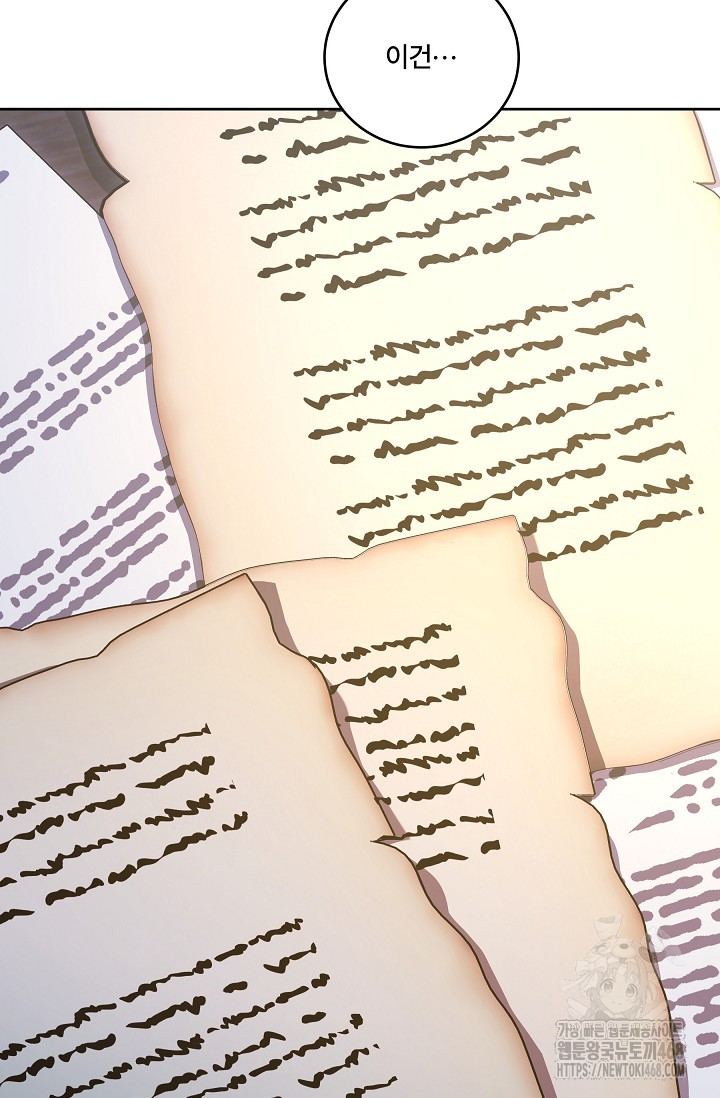 이건…
가장 빠른 웹툰제공사이트
웹툰왕국뉴토끼468
HTTPS://NEWTOKI468.COM